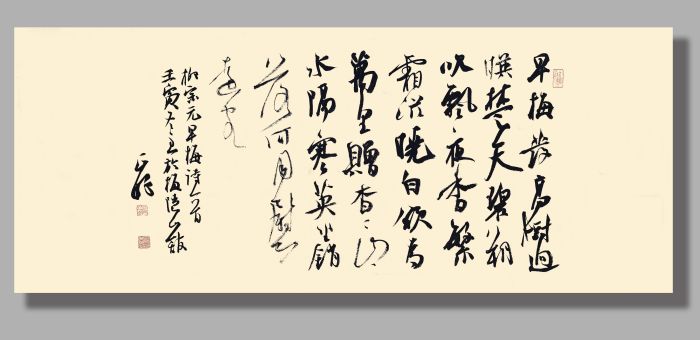 早梅發高樹迥
暎楚天碧朔
吹飄夜香繁
霜滋曉白欲為
萬里贈杳〻山
水隔寒英坐銷
落何用慰
遠客
柳宗元早梅詩一首
壬寅冬 於 山館